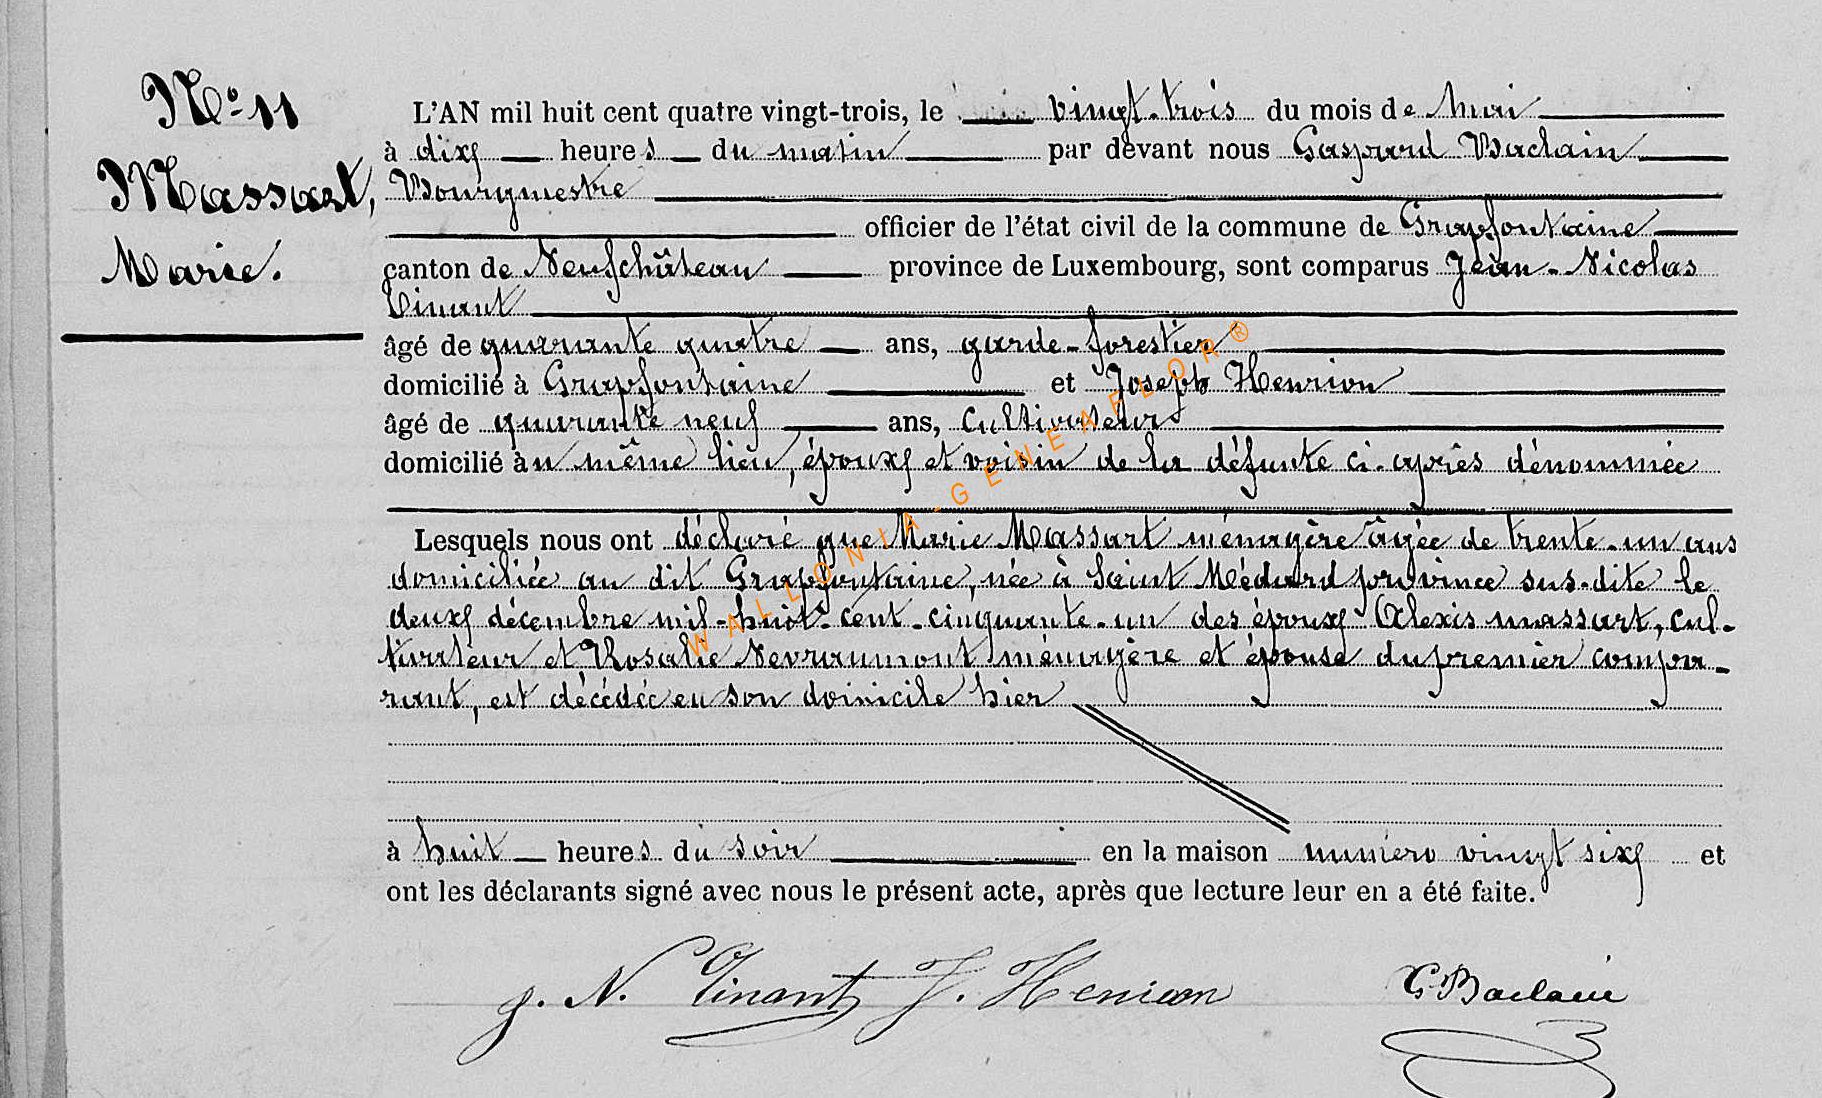 N.º 11
Massart,
Marie.
L'AN mil huit cent quatre vingt-trois, le vingt-trois du mois de Mai
à dix heures du matin par devant nous Gaspard Baclain
Bourgmestre
officier de l'état civil de la commune de Grapfontaine
canton de Neufchâteau province de Luxembourg, sont comparus Jean-Nicolas
Tinant
âgé de quarante quatre ans, garde-forestier
domicilié à Grapfontaine et Joseph Henrion
âgé de quarante neuf ans, cultivateur
domicilié au même lieu, époux et voisin de la défunte ci-après dénommée
Lesquels nous ont déclaré que Marie Massart ménagère âgée de trente-un ans
domiciliée au dit Grapfontaine, née à Saint Médard province sus-dite le
deux décembre mil-huit-cent-cinquante-un des époux Alexis Massart, cul-
tivateur et Rosalie Nevraumont ménagère et épouse du premier compa-
rant, est décédée en son domicile hier
à huit heures du soir en la maison numéro vingt six et
ont les déclarants signé avec nous le présent acte, après que lecture leur en a été faite.
J. N. Tinant J. Henrion G Baclain
WALLONIA-GENEAFLOR®